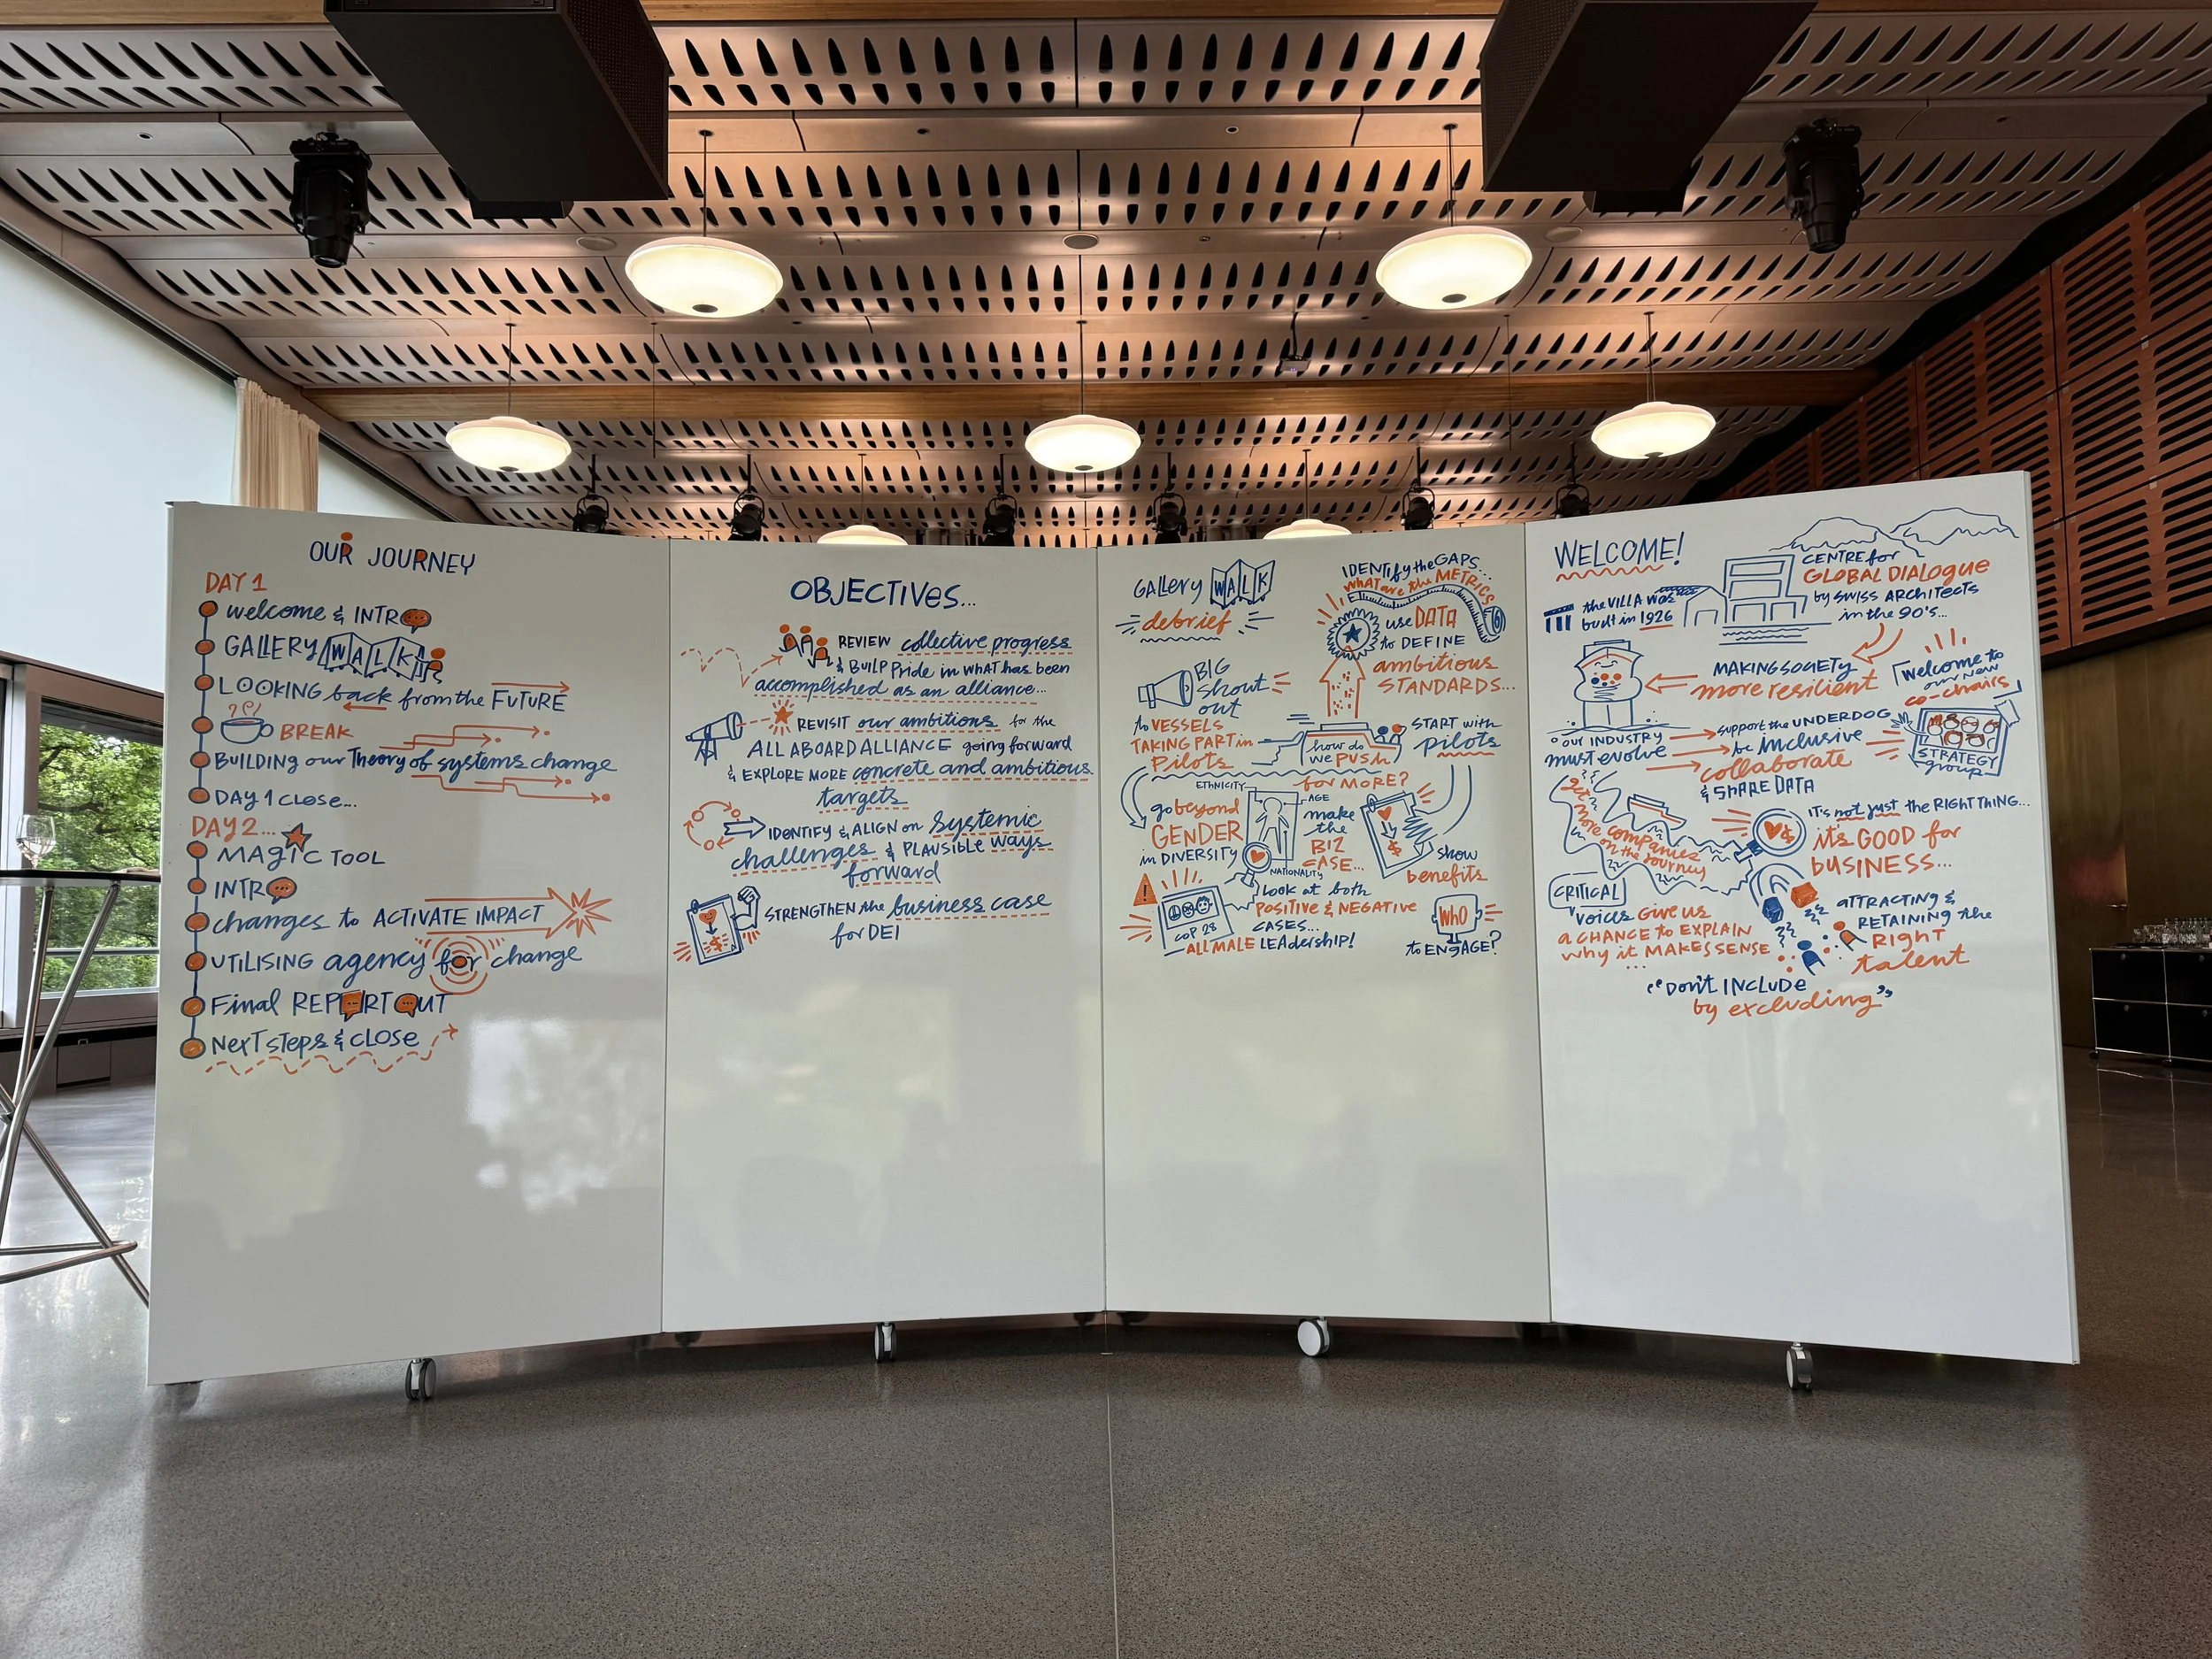 OUR JOURNEY
DAY 1
welcome & INTRO
GALLERY WALK
LOOKING back from the FUTURE
BREAK
BUILDING our Theory of systems change
DAY 1 close...
DAY 2...
MAGIC TOOL
INTRO
changes to ACTIVATE IMPACT
UTILISING agency for change
Final REPORT OUT
NEXT STEPS & CLOSE
OBJECTIVES...
REVIEW collective progress
& BUILD Pride in WHAT has been
accomplished as an alliance...
REVISIT our ambitions for the
ALL ABOARD ALLIANCE going forward
& EXPLORE MORE concrete and ambitious
targets
IDENTIFY & ALIGN on systemic
challenges & PLAUSIBLE ways
forward
STRENGTHEN the business case
for DEI
GALLERY WALK
debrief
BIG
shout
out
to VESSELS
TAKING PART in
Pilots
IDENTIFY the GAPS...
WHAT are the METRICS
use DATA
to DEFINE
ambitious
STANDARDS...
START with
pilots
how do
we PUSH
for MORE?
go beyond
GENDER
in DIVERSITY
ETHNICITY
AGE
NATIONALITY
make
the
BIZ
CASE...
$
show
benefits
!
COP 28
ALL MALE LEADERSHIP!
Look at both
POSITIVE & NEGATIVE
CASES...
WHO
to ENGAGE?
WELCOME!
the VILLA was
built in 1926
CENTRE for
GLOBAL DIALOGUE
by SWISS ARCHITECTS
in the 90's...
MAKING SOCIETY
more resilient
welcome to
our new
co-chairs
STRATEGY
group
OUR INDUSTRY
must evolve
support the UNDERDOG
be inclusive
collaborate
& SHARE DATA
get
more companies
on the journey
IT'S not just the RIGHT THING...
it's GOOD for
BUSINESS...
CRITICAL
VOICES GIVE US
A CHANCE to EXPLAIN
why it MAKES SENSE
...
ATTRACTING &
RETAINING the
RIGHT
talent
"DON'T INCLUDE
by excluding"